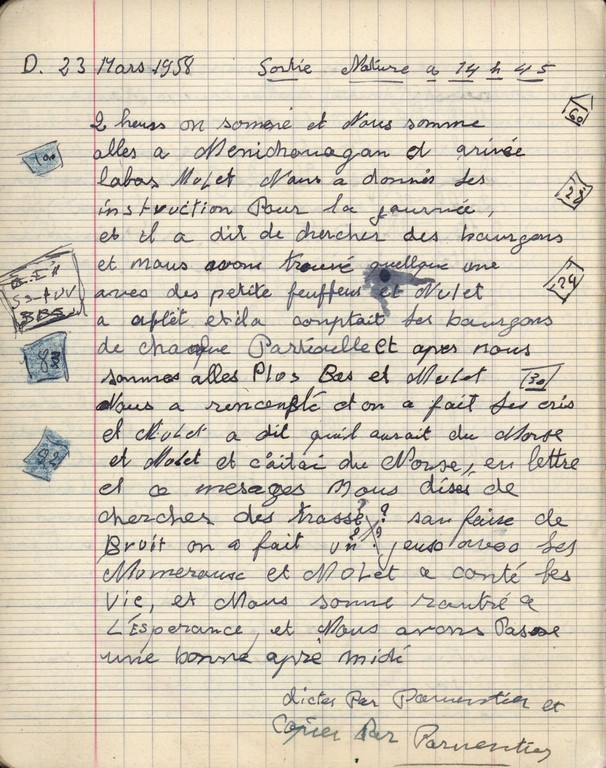 D. 23 Mars 1958 Sortie Nature a 14 h 45
2 heurs on somené et Nous somme
alles a Menichouagan et arivée
labas Mulet Nous a donnés les
instruction Pour la journée,
et il a dit de chercher des bourgons
et mous avons trouvé quellque une
aves des petite feuffeus et Mulet
a aplét et ila comptait les bourgons
de chaque Partéouelle et apres nous
sommes alles Plos Bas et Mulet
Nous a rencenplé et on a fait les cris
et Mulet a dit qu'il aurait du Morse
et Mulet et c'aitai du Morse, en lettre
et ce mesages Mous dises de
chercher des trasse? san faire de
Bruit on a fait un jeus avec les
Mumerause et Mulet a conté les
Vie, et Nous somne rantré a
L'ESperance, et Nous avons Passe
une bonne aprè midi
dictes Par Parventier et
Copier Par Parventier
60
100
28
B.EIA
SS-AUV
BBS
24
30
22